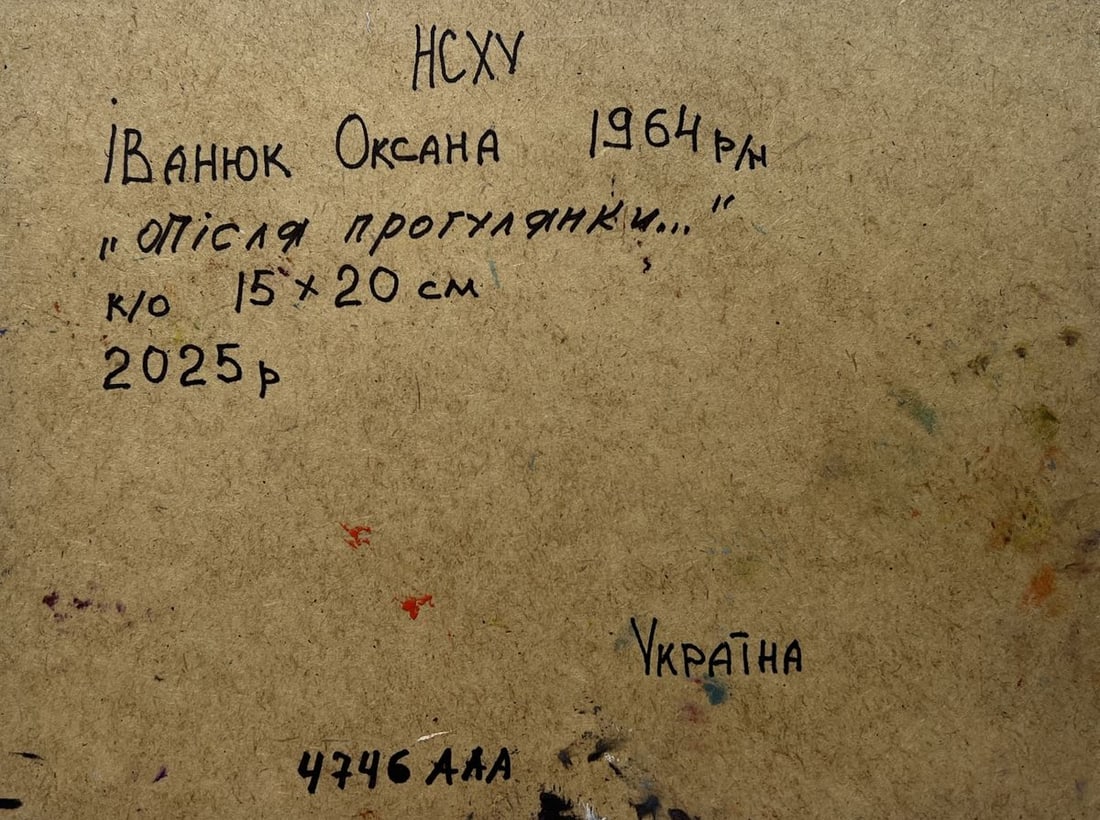 НСХУ
Іванюк Оксана 1964 р/н
„Після прогулянки..."
к/о 15 х 20 см
2025 р
Україна
4746 ААА